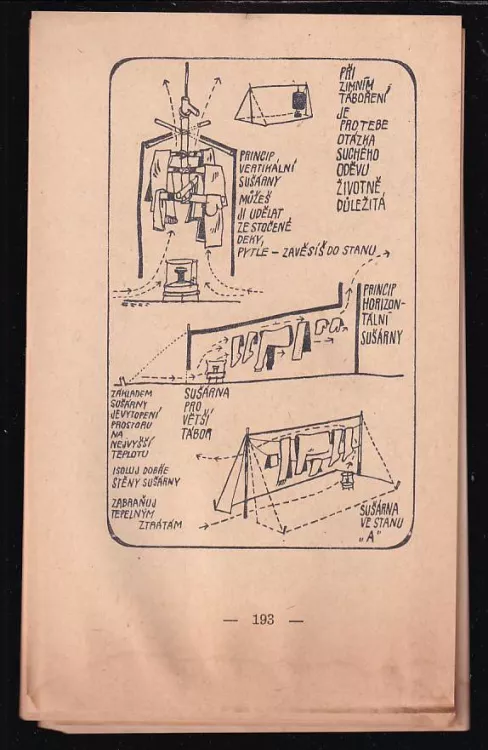 PŘI
ZIMNÍM
TÁBOŘENÍ
JE
PRO TEBE
OTÁZKA
SUCHÉHO
ODĚVU
ŽIVOTNĚ
DŮLEŽITÁ
PRINCIP
VERTIKÁLNÍ
SUŠÁRNY
MŮŽEŠ
JI UDĚLAT
ZE STOČENÉ
DEKY,
PYTLE – ZAVĚSÍŠ DO STANU
PRINCIP
HORIZON-
TÁLNÍ
SUŠÁRNY
ZÁKLADEM
SUŠÁRNY
JE VYTOPENÍ
PROSTORU
NA
NEJVYŠŠÍ
TEPLOTU
ISOLUJ DOBŘE
STĚNY SUŠÁRNY
ZABRAŇUJ
TEPELNÝM
ZTRÁTÁM
SUŠÁRNA
PRO
VĚTŠÍ
TÁBOR
SUŠÁRNA
VE STANU
„A"
— 193 —